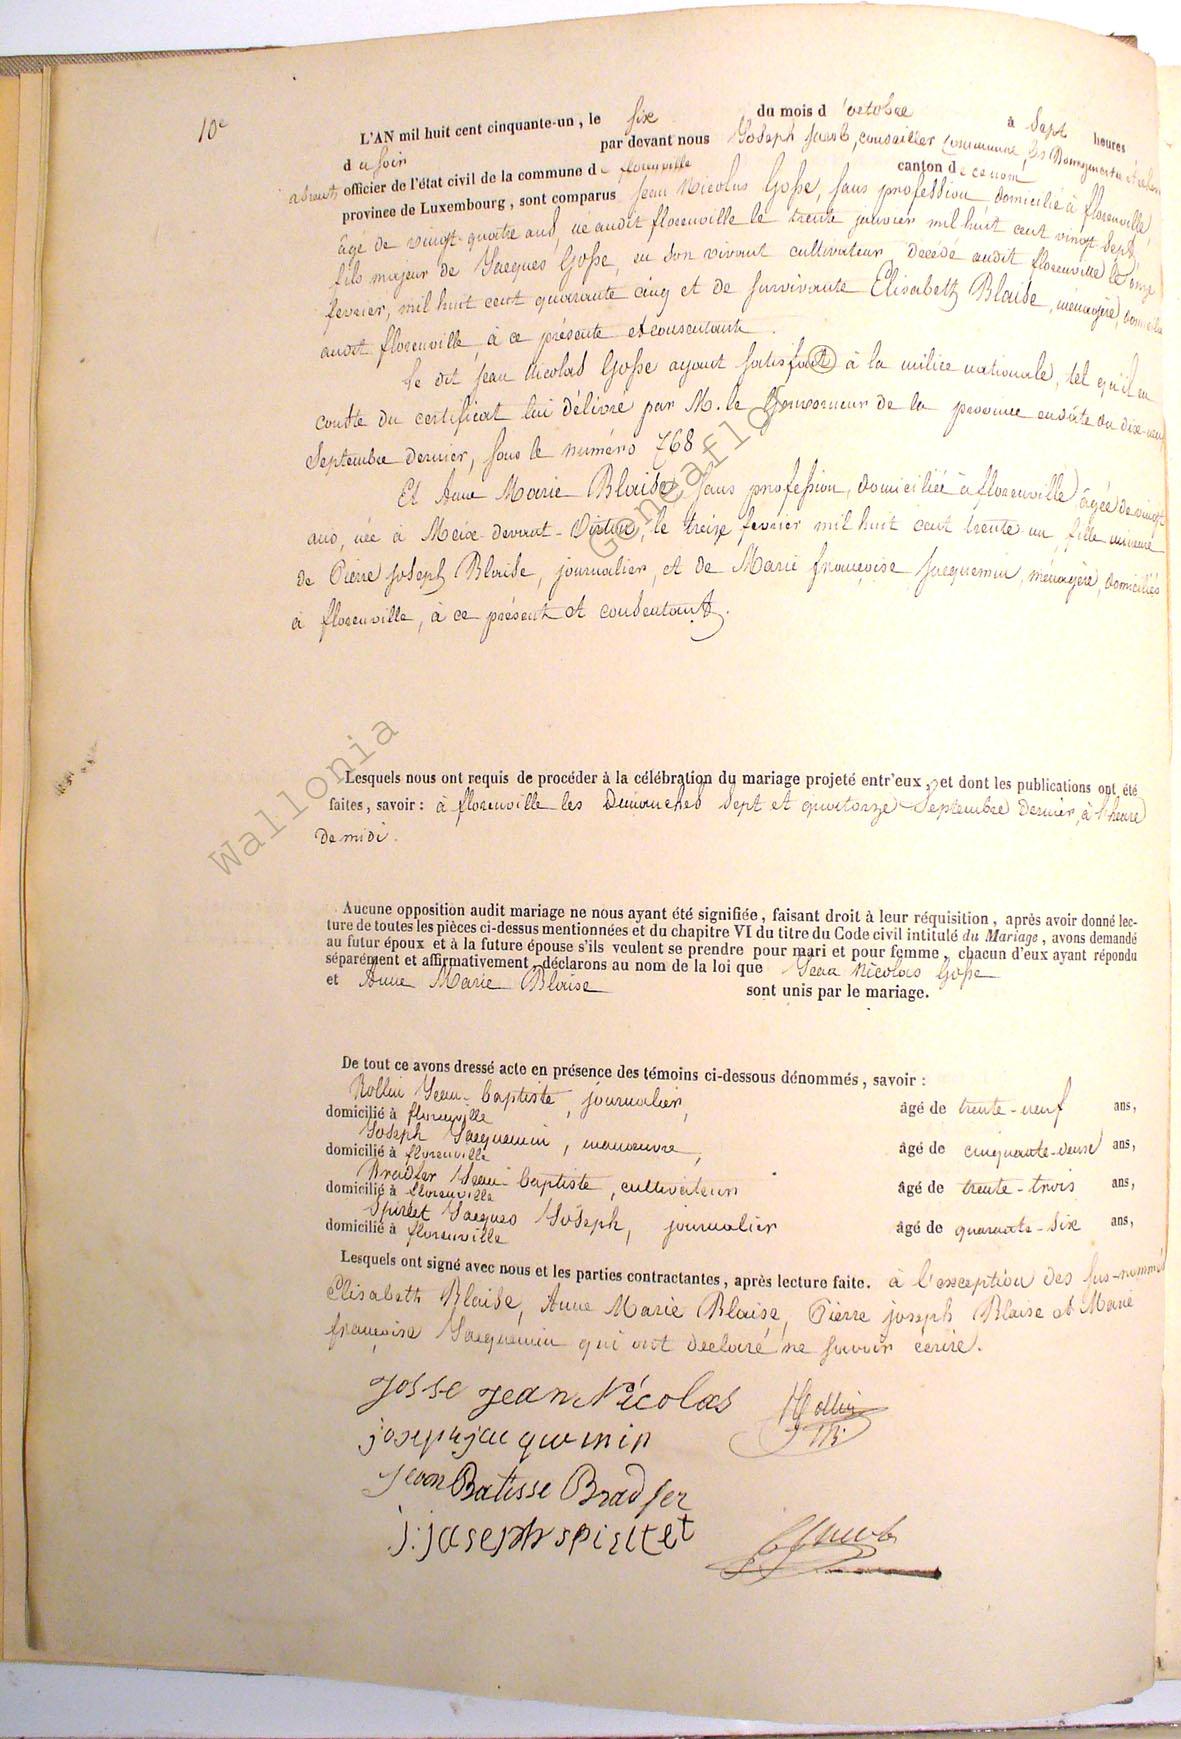 10e
L'AN mil huit cent cinquante-un, le six du mois d'octobre à sept heures
du soir par devant nous Joseph Jacob, conseiller communal, les Bourgmestre et échevins
absents officier de l'état civil de la commune de florenville canton de ce nom
province de Luxembourg, sont comparus Jean Nicolas Gosse, sans profession domicilié à florenville,
âgé de vingt-quatre ans, né audit florenville le trente janvier mil huit cent vingt-sept,
fils majeur de Jacques Gosse, en son vivant cultivateur, décédé audit florenville le onze
fevrier, mil huit cent quarante cinq et de survivante Elisabeth Blaise, ménagère, domiciliée
audit florenville, à ce présente et consentante.
Le dit Jean Nicolas Gosse ayant satisfait à la milice nationale, tel qu'il en
conste du certificat lui délivré par M. le Gouverneur de la province en date du dix-neuf
Septembre dernier, sous le numéro 768
Et Anne Marie Blaise, sans profession, domiciliée à florenville, âgée de vingt
ans, née à Meix-devant-Virton, le treize février mil huit cent trente un, fille mineure
de Pierre Joseph Blaise, journalier, et de Marie françoise Jacquemin, ménagère, domiciliés
à florenville, à ce présents et consentants.
Lesquels nous ont requis de procéder à la célébration du mariage projeté entr'eux, et dont les publications ont été
faites, savoir: à florenville les Dimanches sept et quatorze Septembre dernier, à l'heure
de midi.
Aucune opposition audit mariage ne nous ayant été signifiée, faisant droit à leur réquisition, après avoir donné lec-
ture de toutes les pièces ci-dessus mentionnées et du chapitre VI du titre du Code civil intitulé du Mariage, avons demandé
au futur époux et à la future épouse s'ils veulent se prendre pour mari et pour femme, chacun d'eux ayant répondu
séparément et affirmativement, déclarons au nom de la loi que Jean Nicolas Gosse
et Anne Marie Blaise sont unis par le mariage.
De tout ce avons dressé acte en présence des témoins ci-dessous dénommés, savoir:
Rollin Jean-baptiste, journalier,
domicilié à florenville âgé de trente-neuf ans,
Joseph Jacquemin, manoeuvre,
domicilié à florenville âgé de cinquante-deux ans,
Bradfer Jean-baptiste, cultivateur
domicilié à florenville âgé de trente-trois ans,
Spirlet Jacques Joseph, journalier
domicilié à florenville âgé de quarante-six ans,
Lesquels ont signé avec nous et les parties contractantes, après lecture faite. à l'exception des sus-nommés
Elisabeth Blaise, Anne Marie Blaise, Pierre joseph Blaise et Marie
françoise Jacquemin qui ont declaré ne savoir écrire.
Josse Jean Nicolas Rollin
joseph jacquemin
Jean Batisse Bradfer
j. joseph spirlet Jacob
Wallonia Geneaflo